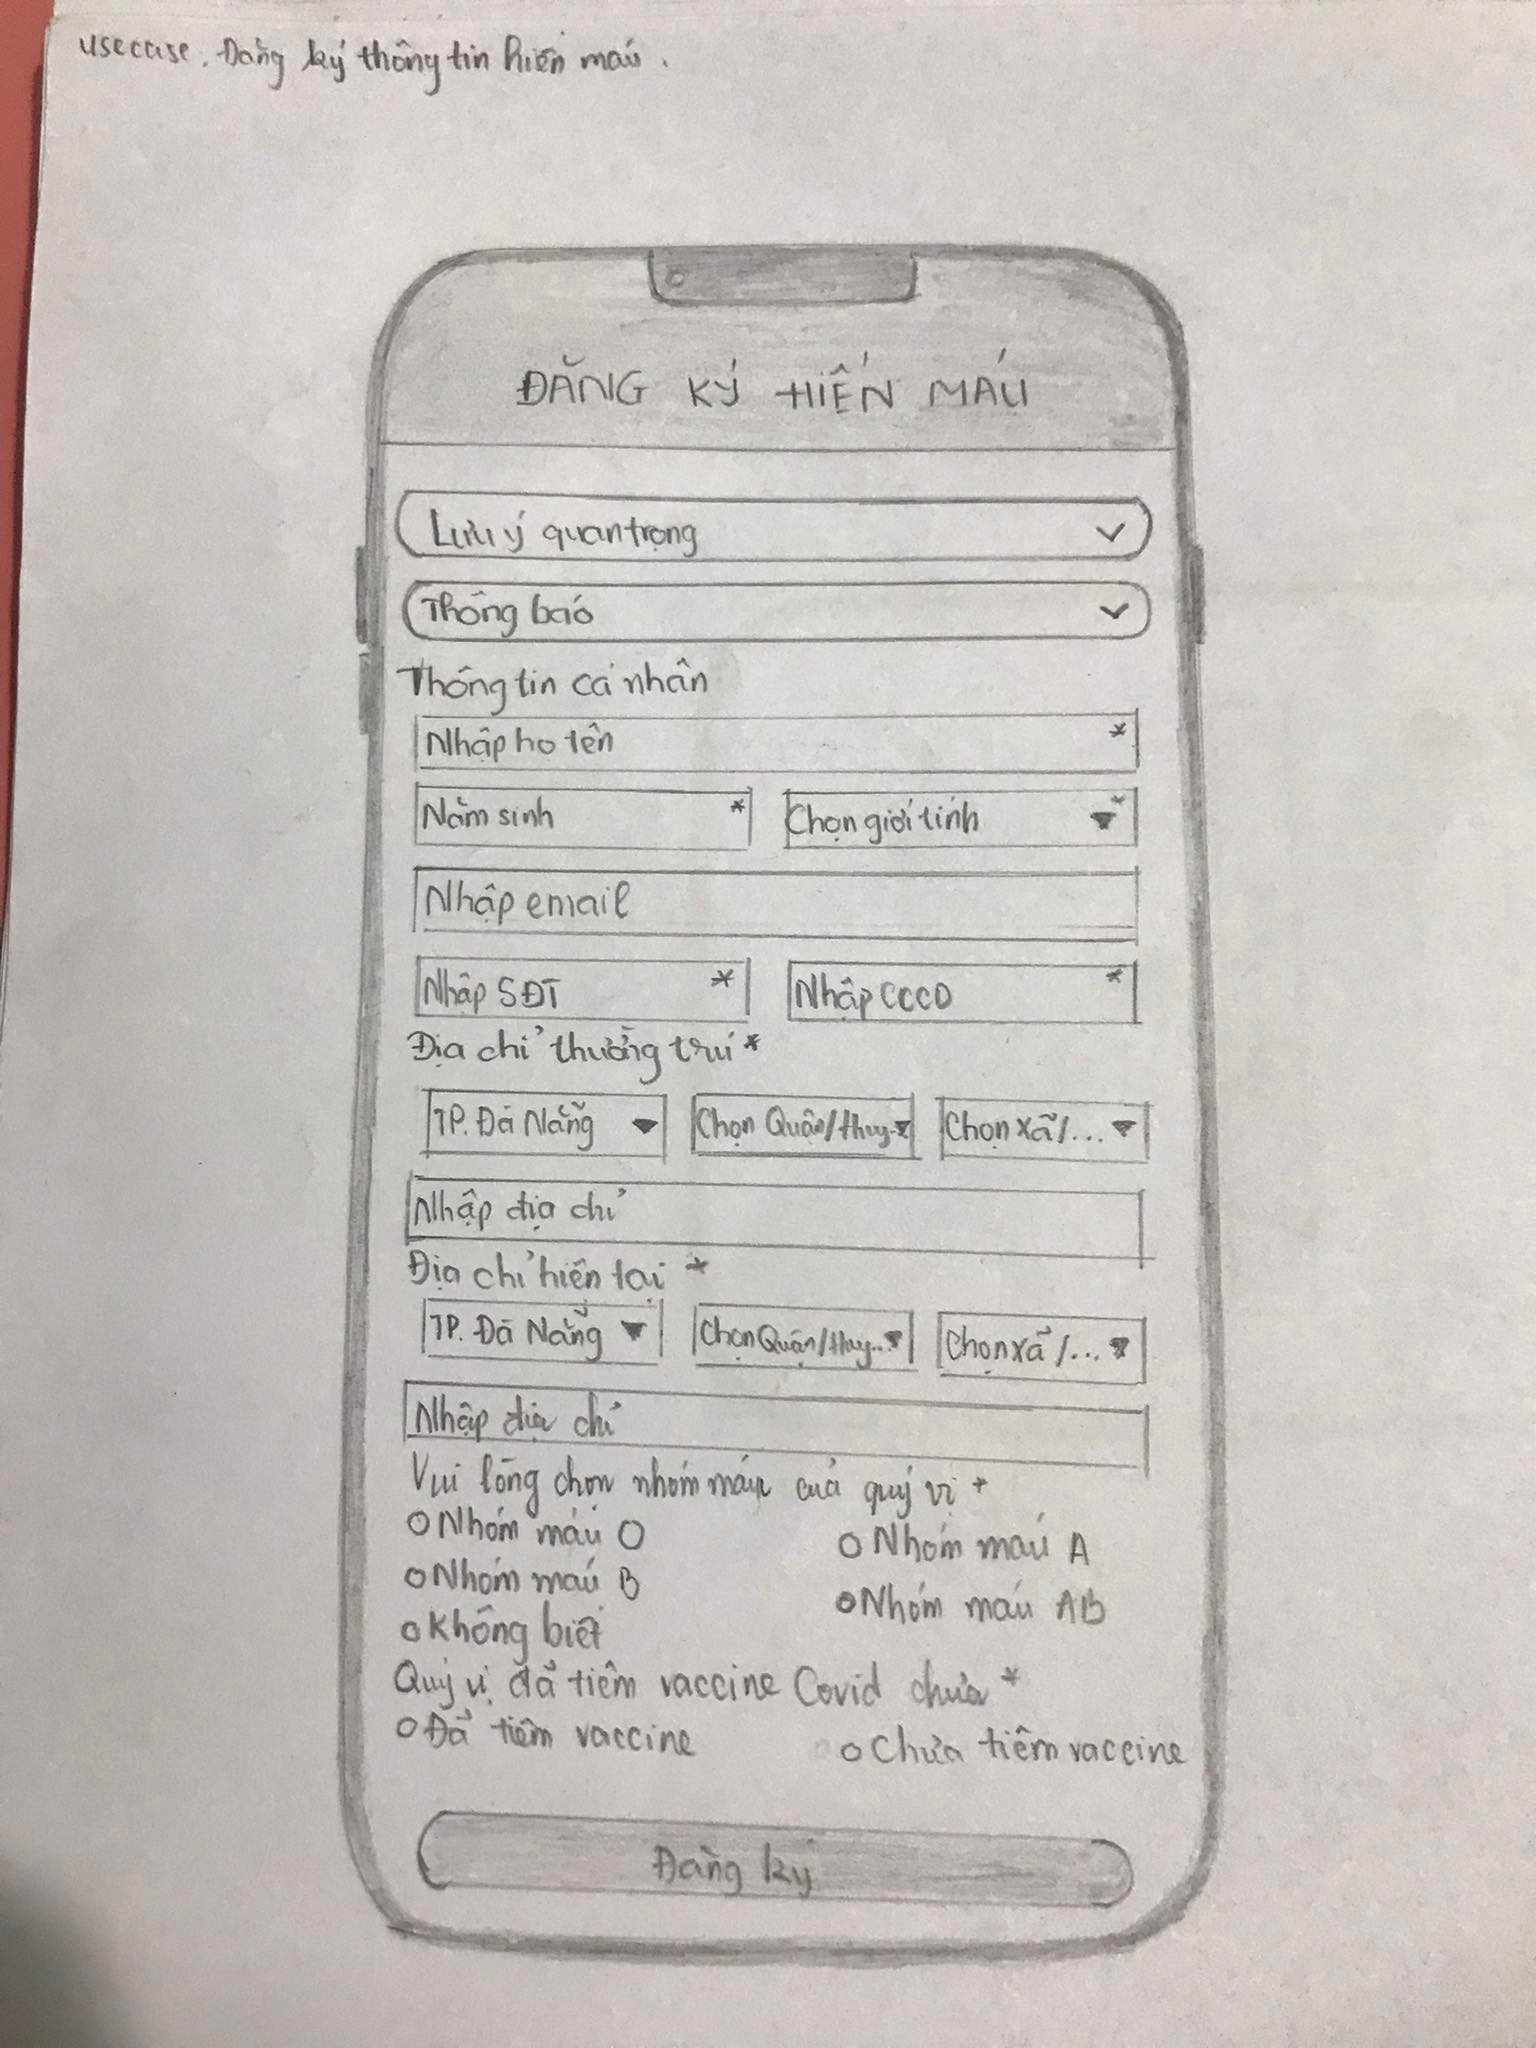 usecase. Đăng ký thông tin hiến máu.
ĐĂNG KÝ HIẾN MÁU
Lưu ý quan trọng
Thông báo
Thông tin cá nhân
Nhập họ tên *
Năm sinh * Chọn giới tính *
Nhập email
Nhập SĐT * Nhập CCCD *
Địa chỉ thường trú *
TP. Đà Nẵng Chọn Quận/Huy.. Chọn xã/...
Nhập địa chỉ
Địa chỉ hiện tại *
TP. Đà Nẵng Chọn Quận/Huy... Chọn xã/...
Nhập địa chỉ
Vui lòng chọn nhóm máu của quý vị *
Nhóm máu O Nhóm máu A
Nhóm máu B Nhóm máu AB
Không biết
Quý vị đã tiêm vaccine Covid chưa *
Đã tiêm vaccine Chưa tiêm vaccine
Đăng ký